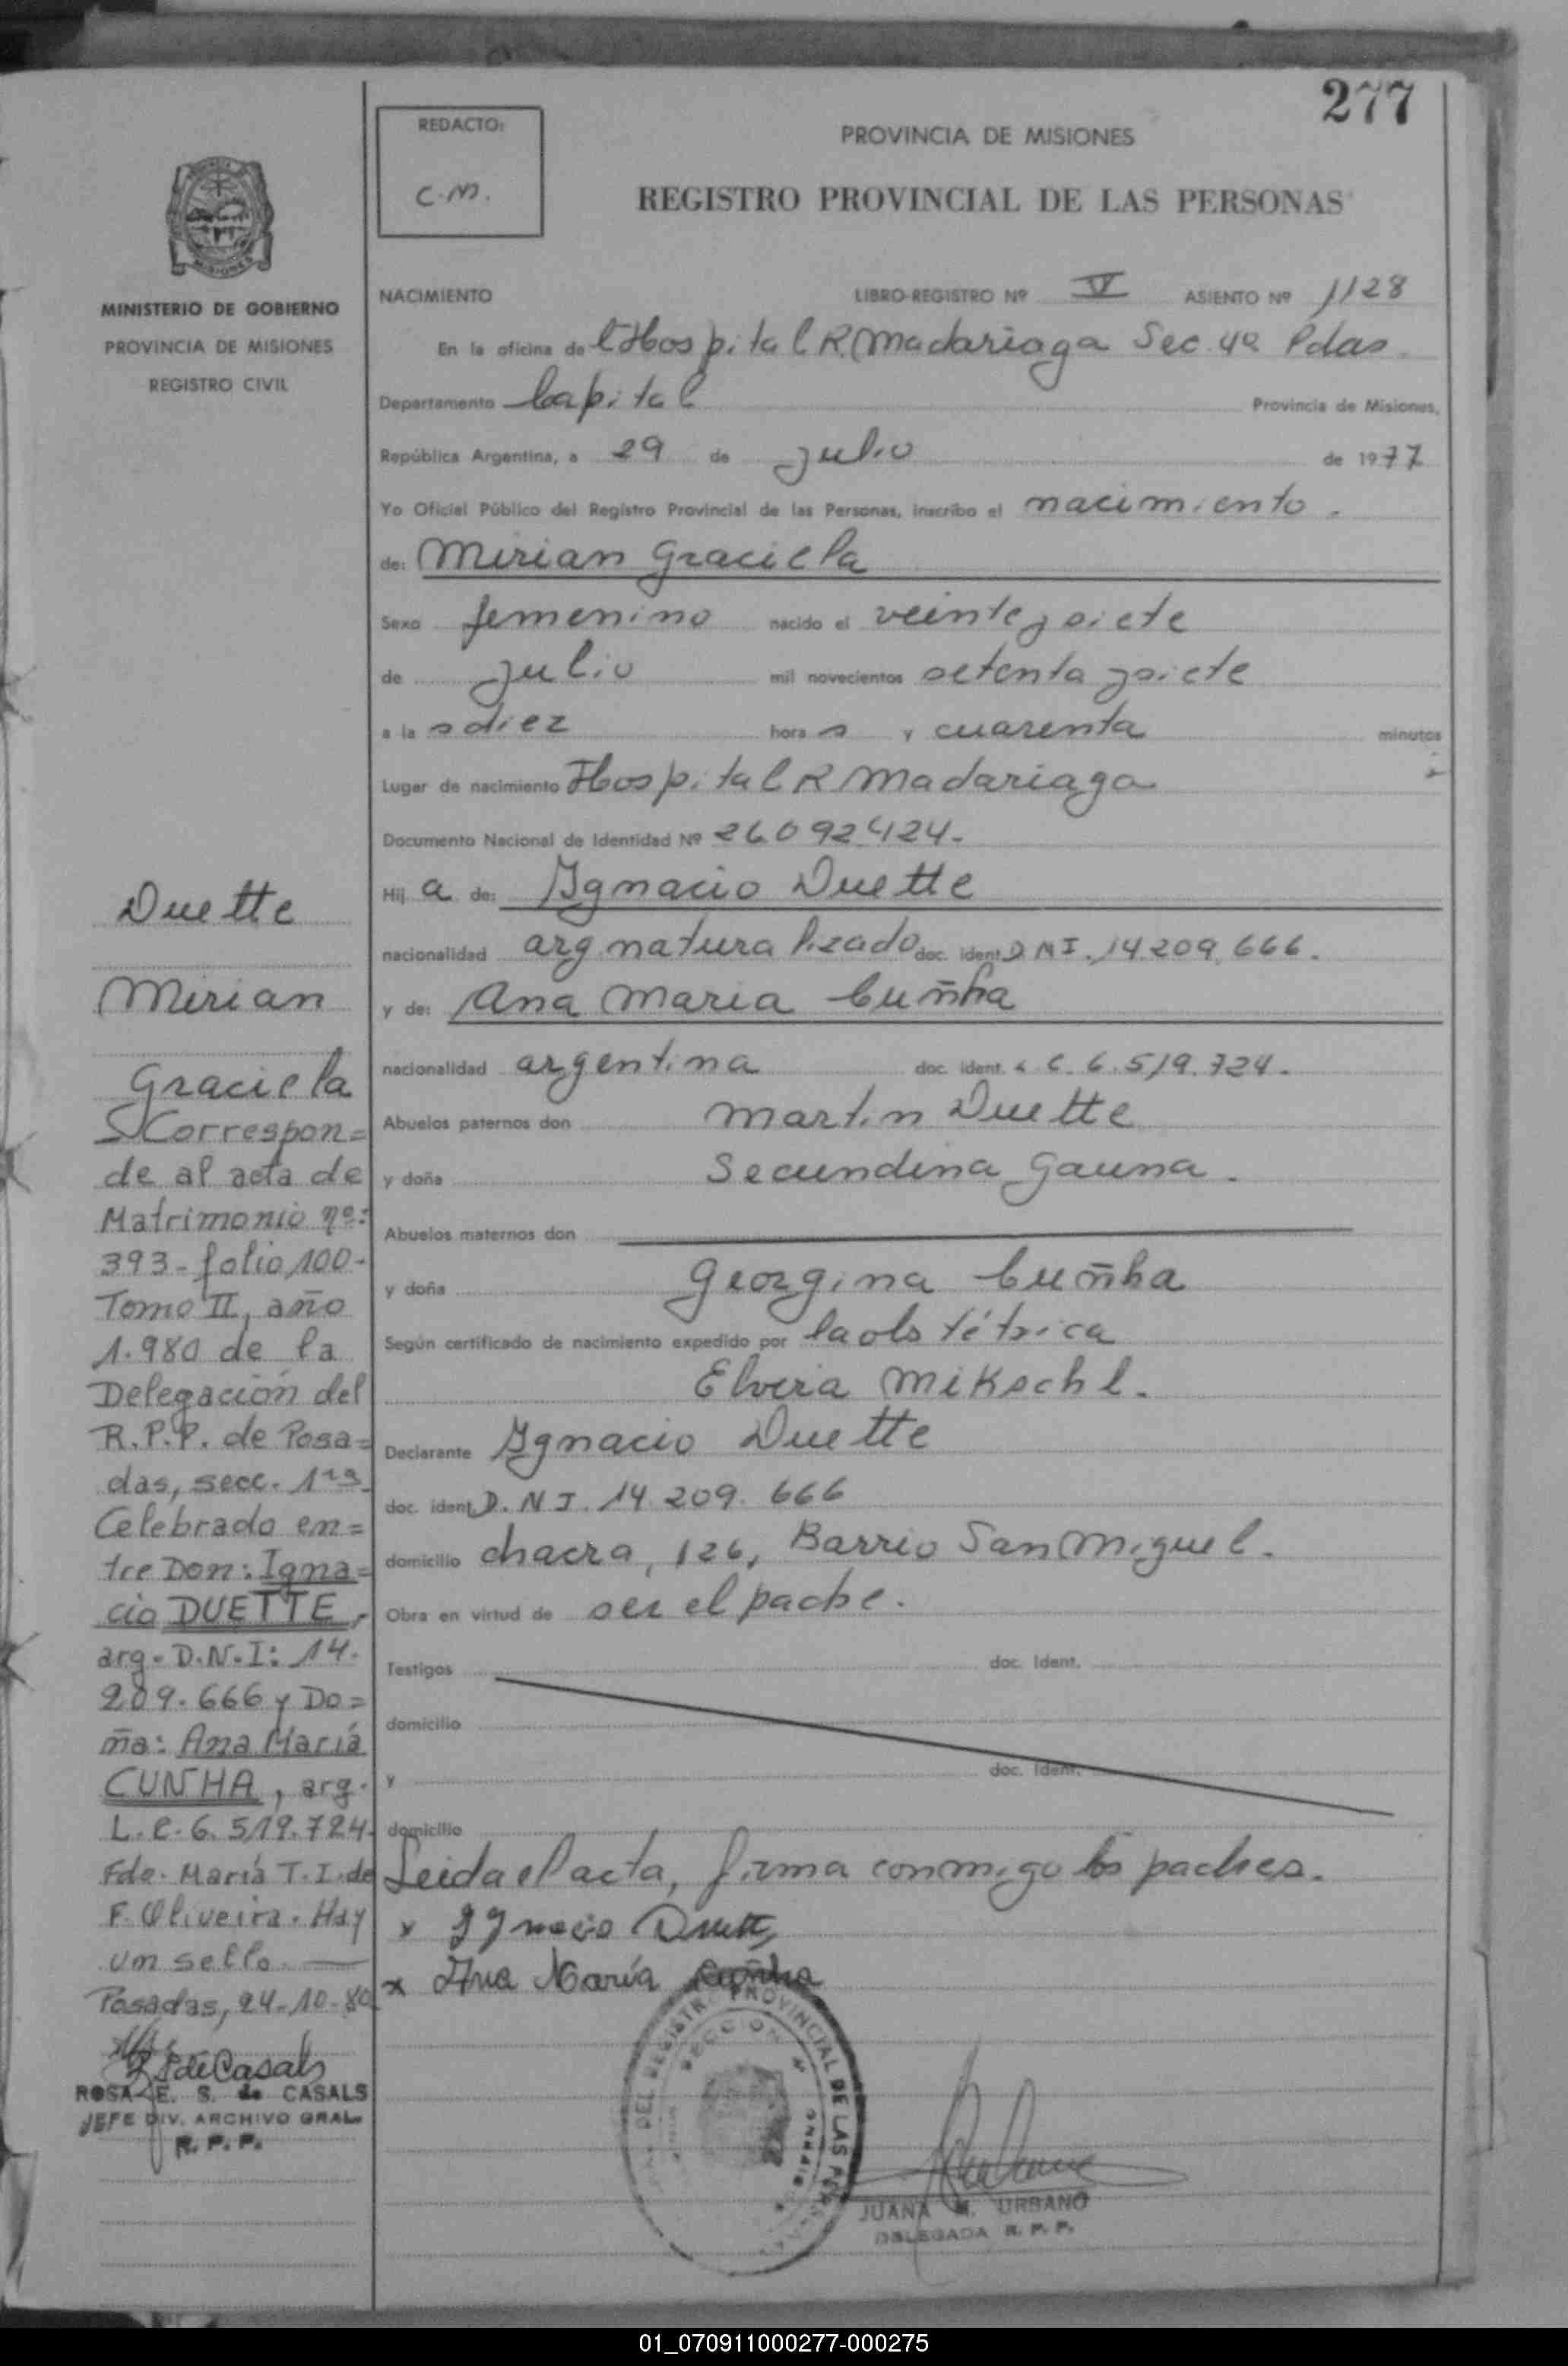 277
REDACTO:
C.M.
PROVINCIA DE MISIONES
REGISTRO PROVINCIAL DE LAS PERSONAS
MINISTERIO DE GOBIERNO
PROVINCIA DE MISIONES
REGISTRO CIVIL
NACIMIENTO LIBRO-REGISTRO Nº V ASIENTO Nº 1128
En la oficina de Hospital R Madariaga Sec. 4ª Pdas.
Departamento Capital Provincia de Misiones,
República Argentina, a 29 de julio de 1977
Yo Oficial Público del Registro Provincial de las Personas, inscribo el nacimiento.
de: Mirian Graciela
Sexo femenino nacido el veinteysiete
de julio mil novecientos setenta ysiete
a la s diez hora s y cuarenta minutos
Lugar de nacimiento Hospital R Madariaga
Documento Nacional de Identidad Nº 26.092.424.
Hij a de: Ygnacio Duette
nacionalidad arg naturalizado doc. ident. D.N.I. 14.209.666.
y de: Ana Maria Cuñha
nacionalidad argentina doc. ident. L C. 6.519.724.
Abuelos paternos don Martin Duette
y doña Secundina Gauna.
Abuelos maternos don
y doña Georgina Cuñha
Según certificado de nacimiento expedido por la obstétrica
Elvira Mikschl.
Declarante Ygnacio Duette
doc. ident. D.N.I. 14.209.666
domicilio chacra, 126, Barrio San Miguel.
Obra en virtud de ser el padre.
Testigos doc. Ident.
domicilio
y doc. Ident.
domicilio
Leida el acta, firma conmigo los padres.
x Ygnacio Duette
x Ana María Cuñha
DEL REGISTRO PROVINCIAL DE LAS
SECCION
JUANA M. URBANO
DELEGADA R. P. P.
Duette
Mirian
Graciela
Correspon=
de al acta de
Matrimonio nº:
393-folio 100-
Tomo II, año
1.980 de la
Delegación del
R.P.P. de Posa=
das, secc. 1ra
Celebrado en=
tre Don: Igna=
cio DUETTE,
arg. D.N.I: 14.
209.666 y Do=
ña: Ana María
CUNHA, arg.
L.C. 6.519.724
Fdo. María T.I. de
F. Oliveira. Hay
un sello.
Posadas, 24-10-80
de Casals
ROSA E. S. de CASALS
JEFE DIV. ARCHIVO GRAL.
R. P. P.
01_070911000277-000275